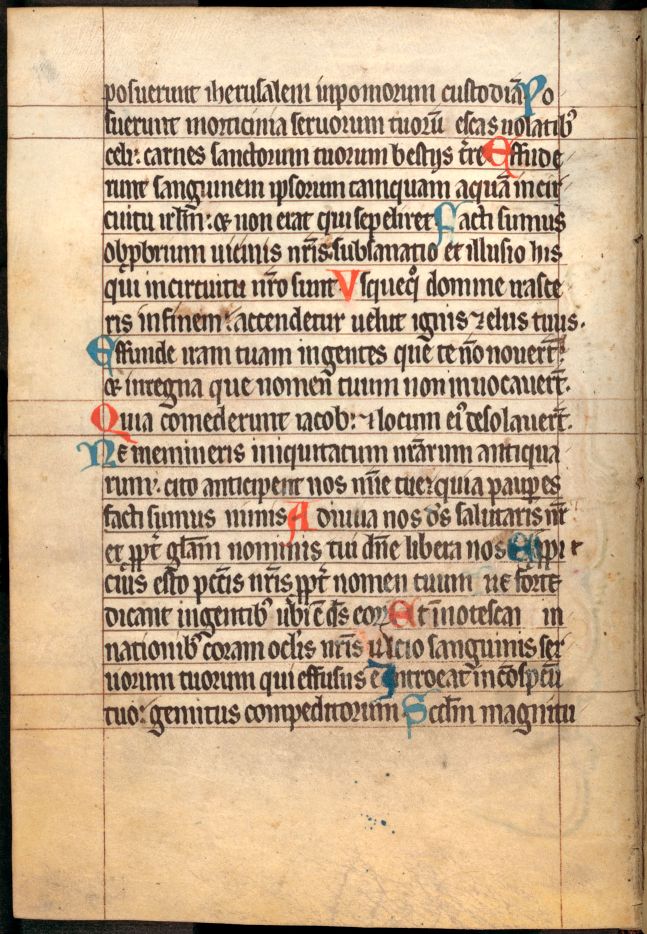 posuerunt iherusalem inpomorum custodiā Po
suerunt morticinia seruorum tuorū escas uolatib᷒
celi: carnes sanctorum tuorum bestijs t̄re Effude
runt sanguinem ipsorum tamquam aquā incir
cuitu irl̄m: ⁊ non erat qui sepeliret Facti sumus
obp̱brium uicinis nr̄is: subsanatio et illusio his
qui incircuitu nr̄o sunt Vsquequo domine irasce
ris infinem: accendetur uelut ignis zelus tuus.
Effunde iram tuam ingentes que te nō nouert̄:
⁊ inregna que nomen tuum non inuocauert̄.
Quia comederunt iacob: ⁊ locum ei᷒ desolauert̄.
Ne memineris iniquitatum nr̄arum antiqua
rum: cito anticipent nos mīe tue: quia paup̱es
facti sumus nimis Adiuua nos d̄s salutaris nr̄
et pp̱t gl̄am nominis tui dn̄e libera nos Et p̱pi
cius esto pctīs nr̄is pp̱t nomen tuum Ne forte
dicant ingentib᷒ ubi ē d̄s eorꝝ Et īnotescat in
nationib᷒ coram ocl̄is nr̄is Ultio sanguinis ser
uorum tuorum qui effusus ē Introeat in ɔspectū
tuo: gemitus compeditorum Scd̄m magnitu